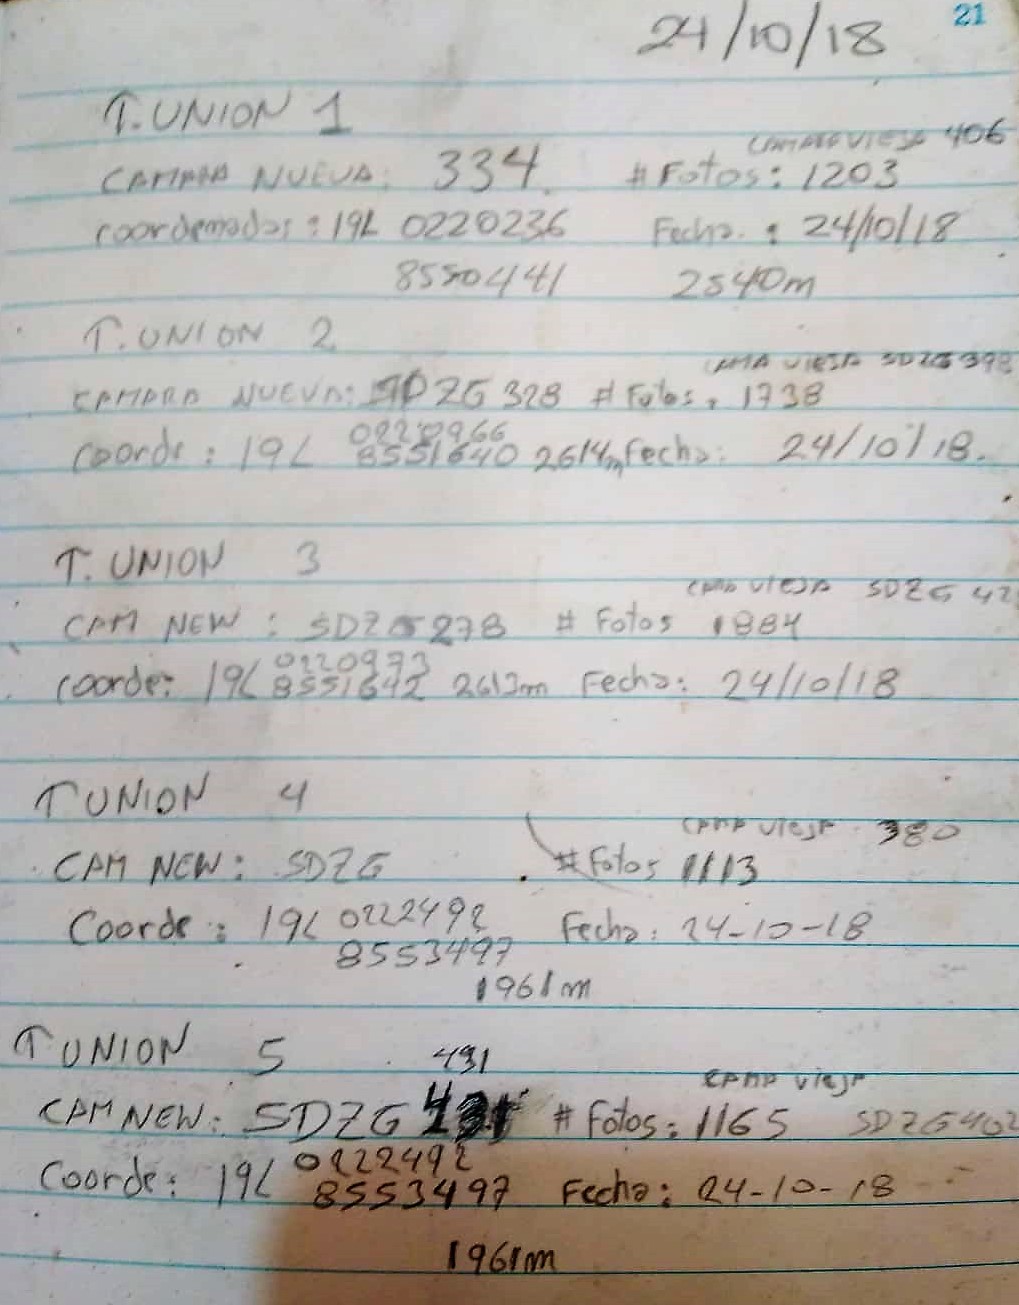 21
24/10/18
T. UNION 1
CAMARA VIEJA 406
CAMARA NUEVA: 334. # Fotos: 1203
coordenadas: 19L 0220236 Fecha: 24/10/18
8550441 2540m
T. UNION 2
CAMA VIEJA SDZG 398
CAMARA NUEVA: SDZG 328 # Fotos. 1738
0220966
Coorde: 19L 8551640 2614m Fecha: 24/10/18.
T. UNION 3
CAMA VIEJA SDZG 42
CAM NEW: SDZG 278 # Fotos 1884
0220973
Coorde: 19L 8551642 2613m Fecha: 24/10/18
T UNION 4
CAMA VIEJA 380
CAM NEW: SDZG # Fotos 1113
Coorde: 19L 0222492 Fecha: 24-10-18
8553497
1961m
T UNION 5 431
CAMA VIEJA
CAM NEW: SDZG # Fotos: 1165 SDZG 402
0222492
Coorde: 19L 8553497 Fecha: 24-10-18
1961m